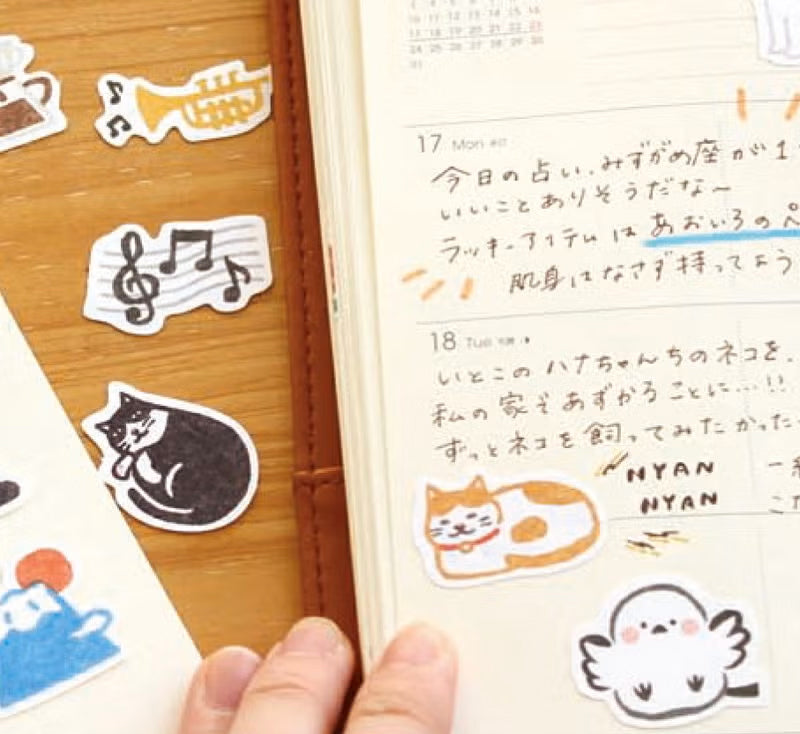 10 11 12 13 14 15 16
17 18 19 20 21 22 23
24 25 26 27 28 29 30
31
17 Mon
今日の占い、みずがめ座が1
いいことありそうだな〜
ラッキーアイテムは あおいろのペ
肌身はなさず持ってよう
18 Tue
いとこのハナちゃんちのネコを、
私の家であずかることに…!!
ずっとネコを飼ってみたかった
NYAN 一緒
NYAN